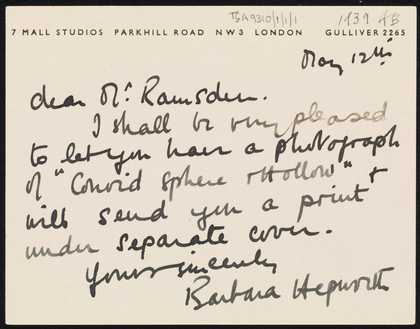 TGA 9310/1/1/1
1939 AB
7 MALL STUDIOS PARKHILL ROAD NW3 LONDON GULLIVER 2265
May 12th
dear Mr. Ramsden.
I shall be very pleased
to let you have a photograph
of "Conoid Sphere & Hollow" &
will send you a print
under separate cover.
Yours sincerely
Barbara Hepworth